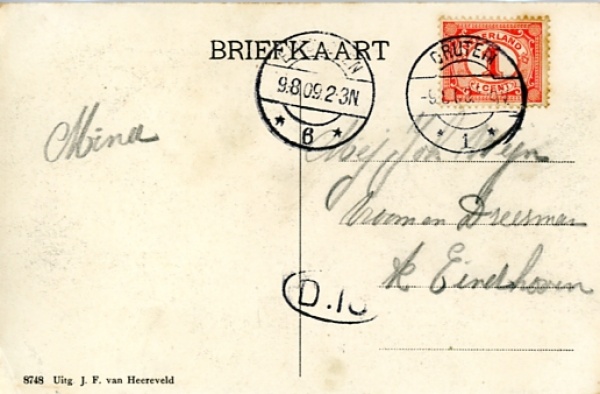 BRIEFKAART
9.8.09.2-3N
* 6 *
GRUTEN
NEDERLAND
1
CENT
* 1 *
Mina
Mej
Vroom en Dreesman
Eindhoven
D.10
8748 Uitg J. F. van Heereveld